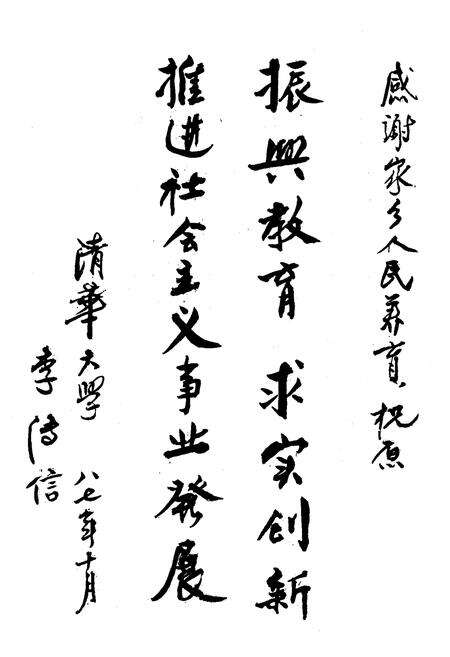 感谢家乡人民养育,祝愿
振興教育 求实创新
推进社会主义事业發展
清華大學 八七年十月
李传信